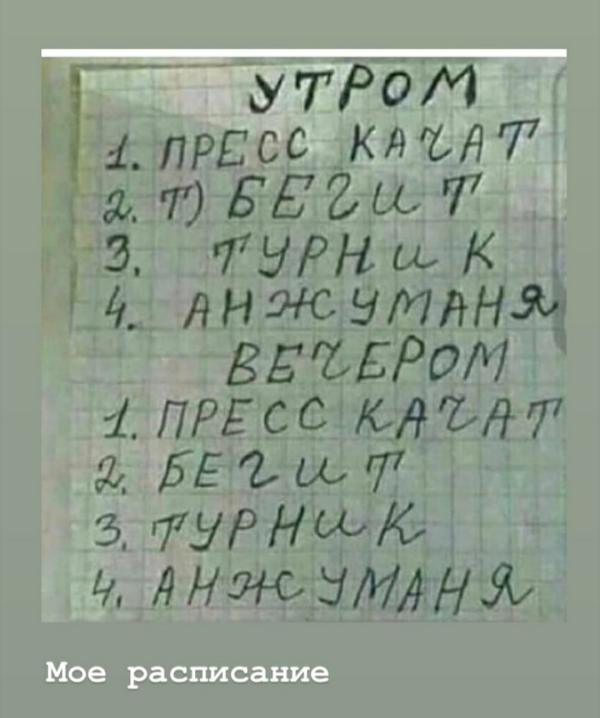 УТРОМ
1. ПРЕСС КАЧАТ
2. Т) БЕГИТ
3. ТУРНИК
4. АНЖУМАНЯ
ВЕЧЕРОМ
1. ПРЕСС КАЧАТ
2. БЕГИТ
3. ТУРНИК
4. АНЖУМАНЯ
Мое расписание